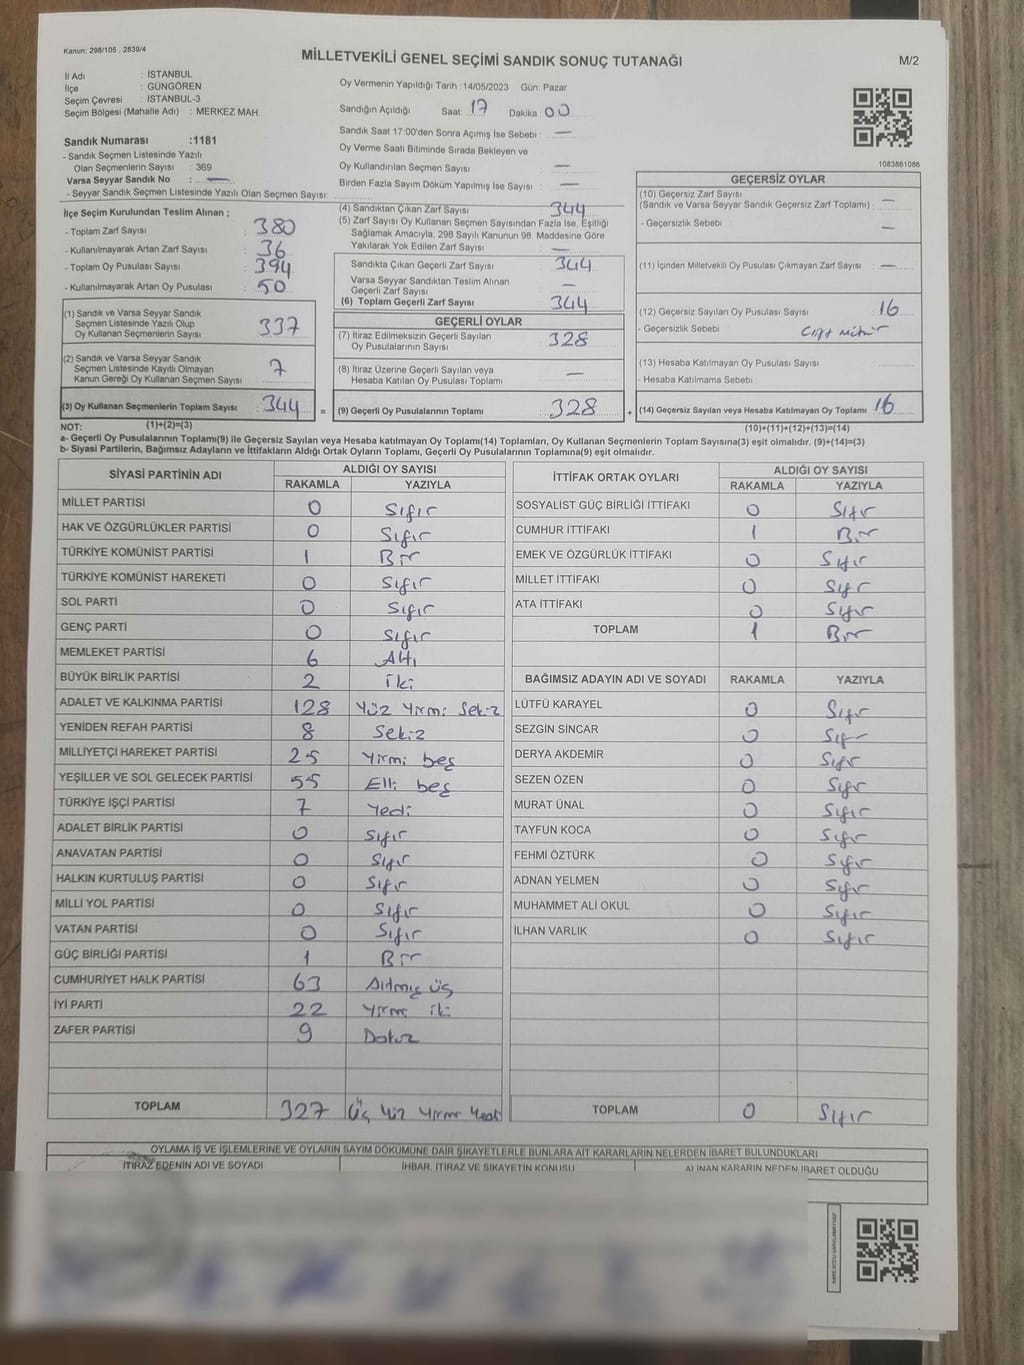 Kanun: 298/105 , 2839/4
MİLLETVEKİLİ GENEL SEÇİMİ SANDIK SONUÇ TUTANAĞI
M/2
İl Adı : İSTANBUL
İlçe : GÜNGÖREN
Seçim Çevresi : İSTANBUL-3
Seçim Bölgesi (Mahalle Adı) : MERKEZ MAH.
Oy Vermenin Yapıldığı Tarih :14/05/2023 Gün: Pazar
Sandığın Açıldığı Saat: 17 Dakika : 00
Sandık Saat 17:00'den Sonra Açımış İse Sebebi : —
Oy Verme Saati Bitiminde Sırada Bekleyen ve
Oy Kullandırılan Seçmen Sayısı : —
Birden Fazla Sayım Döküm Yapılmış İse Sayısı : —
1083861086
Sandık Numarası :1181
- Sandık Seçmen Listesinde Yazılı
Olan Seçmenlerin Sayısı : 369
Varsa Seyyar Sandık No : —
- Seyyar Sandık Seçmen Listesinde Yazılı Olan Seçmen Sayısı:
İlçe Seçim Kurulundan Teslim Alınan ;
- Toplam Zarf Sayısı : 380
- Kullanılmayarak Artan Zarf Sayısı : 36
- Toplam Oy Pusulası Sayısı : 394
- Kullanılmayarak Artan Oy Pusulası : 50
(1) Sandık ve Varsa Seyyar Sandık
Seçmen Listesinde Yazılı Olup
Oy Kullanan Seçmenlerin Sayısı : 337
(2) Sandık ve Varsa Seyyar Sandık
Seçmen Listesinde Kayıtlı Olmayan
Kanun Gereği Oy Kullanan Seçmen Sayısı : 7
(3) Oy Kullanan Seçmenlerin Toplam Sayısı : 344 =
(1)+(2)=(3)
(4) Sandıktan Çıkan Zarf Sayısı : 344
(5) Zarf Sayısı Oy Kullanan Seçmen Sayısından Fazla İse, Eşitliği
Sağlamak Amacıyla, 298 Sayılı Kanunun 98. Maddesine Göre
Yakılarak Yok Edilen Zarf Sayısı : —
Sandıkta Çıkan Geçerli Zarf Sayısı : 344
Varsa Seyyar Sandıktan Teslim Alınan
Geçerli Zarf Sayısı : —
(6) Toplam Geçerli Zarf Sayısı : 344
GEÇERLİ OYLAR
(7) İtiraz Edilmeksizin Geçerli Sayılan
Oy Pusulalarının Sayısı : 328
(8) İtiraz Üzerine Geçerli Sayılan veya
Hesaba Katılan Oy Pusulası Toplamı : —
(9) Geçerli Oy Pusulalarının Toplamı : 328 +
GEÇERSİZ OYLAR
(10) Geçersiz Zarf Sayısı
(Sandık ve Varsa Seyyar Sandık Geçersiz Zarf Toplamı) : —
- Geçersizlik Sebebi : —
(11) İçinden Milletvekili Oy Pusulası Çıkmayan Zarf Sayısı : —
(12) Geçersiz Sayılan Oy Pusulası Sayısı : 16
- Geçersizlik Sebebi : Çift Mühür
(13) Hesaba Katılmayan Oy Pusulası Sayısı
- Hesaba Katılmama Sebebi
(14) Geçersiz Sayılan veya Hesaba Katılmayan Oy Toplamı : 16
(10)+(11)+(12)+(13)=(14)
NOT:
a- Geçerli Oy Pusulalarının Toplamı(9) ile Geçersiz Sayılan veya Hesaba katılmayan Oy Toplamı(14) Toplamları, Oy Kullanan Seçmenlerin Toplam Sayısına(3) eşit olmalıdır. (9)+(14)=(3)
b- Siyasi Partilerin, Bağımsız Adayların ve İttifakların Aldığı Ortak Oyların Toplamı, Geçerli Oy Pusulalarının Toplamına(9) eşit olmalıdır.
SİYASİ PARTİNİN ADI ALDIĞI OY SAYISI
RAKAMLA YAZIYLA
MİLLET PARTİSİ 0 Sıfır
HAK VE ÖZGÜRLÜKLER PARTİSİ 0 Sıfır
TÜRKİYE KOMÜNİST PARTİSİ 1 Bir
TÜRKİYE KOMÜNİST HAREKETİ 0 Sıfır
SOL PARTİ 0 Sıfır
GENÇ PARTİ 0 Sıfır
MEMLEKET PARTİSİ 6 Altı
BÜYÜK BİRLİK PARTİSİ 2 iki
ADALET VE KALKINMA PARTİSİ 128 Yüz Yirmi Sekiz
YENİDEN REFAH PARTİSİ 8 Sekiz
MİLLİYETÇİ HAREKET PARTİSİ 25 Yirmi beş
YEŞİLLER VE SOL GELECEK PARTİSİ 55 Elli beş
TÜRKİYE İŞÇİ PARTİSİ 7 Yedi
ADALET BİRLİK PARTİSİ 0 Sıfır
ANAVATAN PARTİSİ 0 Sıfır
HALKIN KURTULUŞ PARTİSİ 0 Sıfır
MİLLİ YOL PARTİSİ 0 Sıfır
VATAN PARTİSİ 0 Sıfır
GÜÇ BİRLİĞİ PARTİSİ 1 Bir
CUMHURİYET HALK PARTİSİ 63 Altmış üç
İYİ PARTİ 22 Yirmi iki
ZAFER PARTİSİ 9 Dokuz
TOPLAM 327 Üç Yüz Yirmi Yedi
İTTİFAK ORTAK OYLARI ALDIĞI OY SAYISI
RAKAMLA YAZIYLA
SOSYALİST GÜÇ BİRLİĞİ İTTİFAKI 0 Sıfır
CUMHUR İTTİFAKI 1 Bir
EMEK VE ÖZGÜRLÜK İTTİFAKI 0 Sıfır
MİLLET İTTİFAKI 0 Sıfır
ATA İTTİFAKI 0 Sıfır
TOPLAM 1 Bir
BAĞIMSIZ ADAYIN ADI VE SOYADI RAKAMLA YAZIYLA
LÜTFÜ KARAYEL 0 Sıfır
SEZGİN SİNCAR 0 Sıfır
DERYA AKDEMİR 0 Sıfır
SEZEN ÖZEN 0 Sıfır
MURAT ÜNAL 0 Sıfır
TAYFUN KOCA 0 Sıfır
FEHMİ ÖZTÜRK 0 Sıfır
ADNAN YELMEN 0 Sıfır
MUHAMMET ALİ OKUL 0 Sıfır
İLHAN VARLIK 0 Sıfır
TOPLAM 0 Sıfır
OYLAMA İŞ VE İŞLEMLERİNE VE OYLARIN SAYIM DÖKÜMÜNE DAİR ŞİKAYETLERLE BUNLARA AİT KARARLARIN NELERDEN İBARET BULUNDUKLARI
İTİRAZ EDENİN ADI VE SOYADI İHBAR, İTİRAZ VE ŞİKAYETİN KONUSU ALINAN KARARIN NEDEN İBARET OLDUĞU